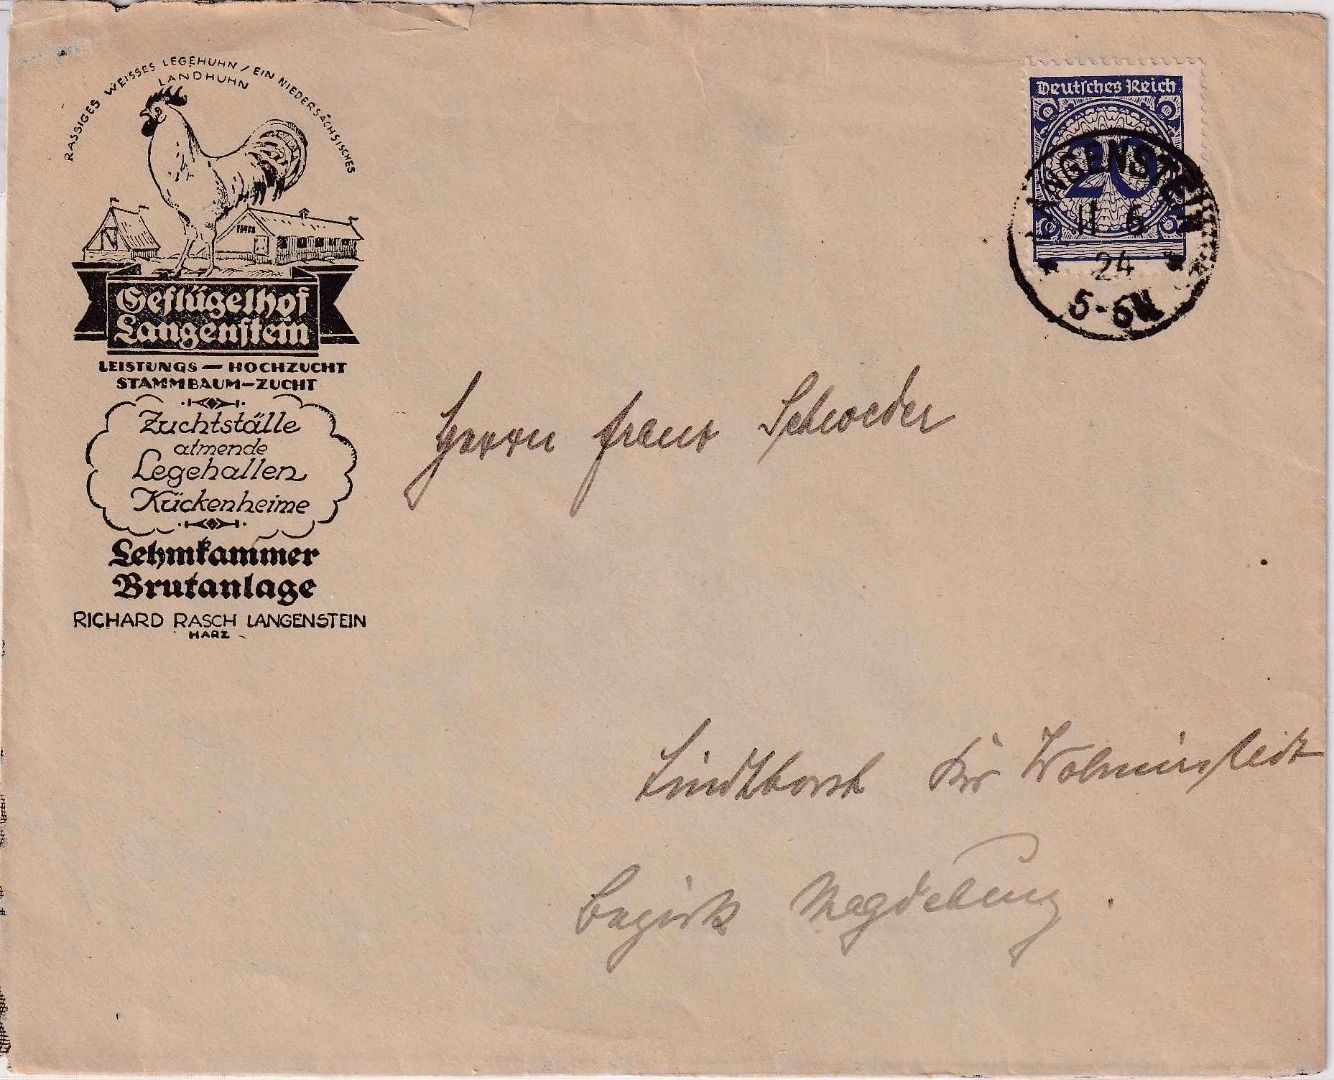 RASSIGES WEISSES LEGEHUHN / EIN NIEDERSÄCHSISCHES
LANDHUHN
Geflügelhof
Langenstein
LEISTUNGS — HOCHZUCHT
STAMMBAUM—ZUCHT
Zuchtställe
atmende
Legehallen
Kückenheime
Lehmkammer
Brutanlage
RICHARD RASCH LANGENSTEIN
HARZ
Deutsches Reich
20
LANGENSTEIN
11 6
24
5-6N
Herrn Franz Schroeder
Lindhorst Kr Wolmirstedt
Bezirk Magdeburg.